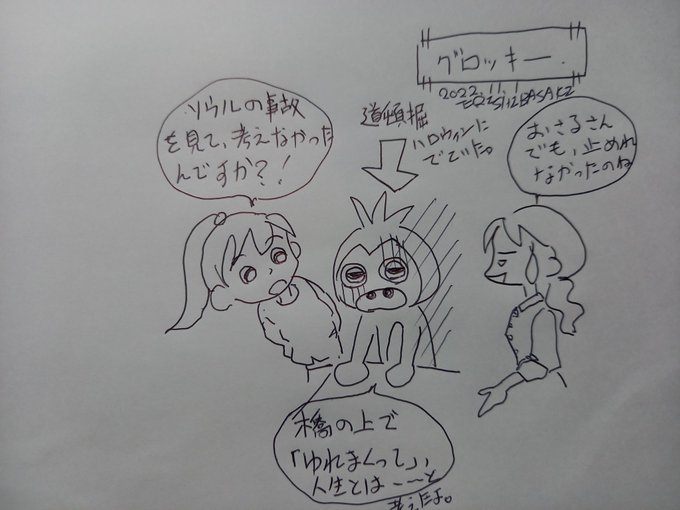 グロッキー.
2022.11.1
ソウルの事故
を見て、考えなかった
んですか?!
道頓堀
ハロウィンに
でてた。
おさるさん
でも、止めれ
なかったのね
橋の上で
「ゆれまくって」、
人生とは---と
考えたよ。